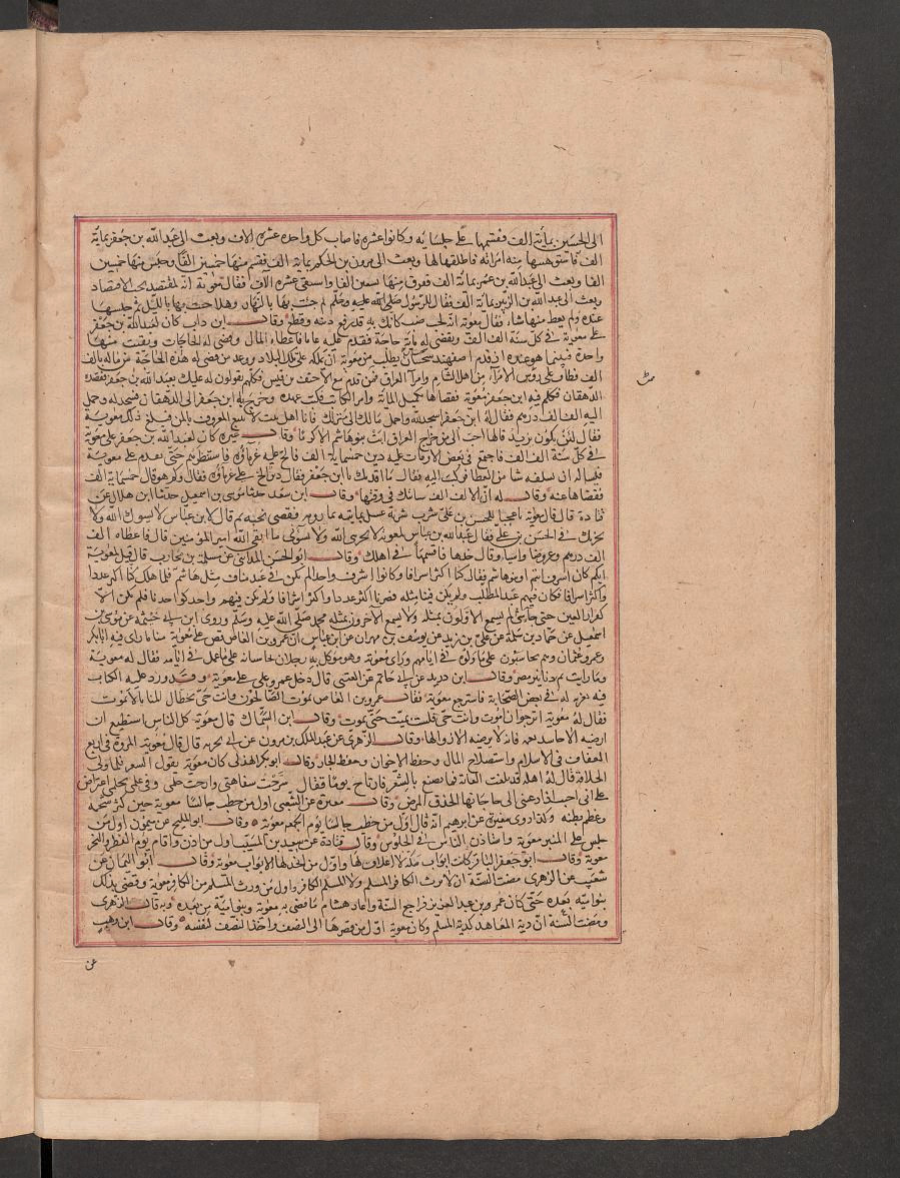 الى الحسن بمائة الف فقسمها على جلسائه وكانوا عشرة فاصاب كل واحد عشرة الاف وبعث الى عبد الله بن جعفر بمائة
الف فاستوهبتها منه امرأته فاطلقها لها وبعث الى مروان بن الحكم بمائة الف فقسم منها خمسين الفا وحبس منها خمسين
الفا وبعث الى عبد الله بن عمر بمائة الف ففرق منها تسعين الفا واستبقى عشرة الاف فقال معوية انه لمقتصد يحب الاقتصاد
وبعث الى عبد الله بن الزبير بمائة الف فقال للرسول صلى الله عليه وسلم لم جئت بها بالنهار وهلا جئت بها بالليل ثم حبسها
عنده ولم يعط منها شيئا فقال معوية انه لخب ضب كانك به قد رفع ذنبه وقطع وقال ابن داب كان لعبد الله بن جعفر
على معوية في كل سنة الف الف ويقضى له مائة حاجة فقدم عليه عاما فاعطاه المال وقضى له الحاجات وبقيت منها
واحدة فبينما هو عنده اذ قدم اصفهبذ سجستان يطلب من معوية ان يملكه على تلك البلاد ووعد من قضى له هذه الحاجة من ماله بالف
الف فطاف على رؤس الامراء من اهل الشام وامراء العراق ممن قدم مع الاحنف بن قيس فكلهم يقولون له عليك بعبد الله بن جعفر فقصده
الدهقان فكلم فيه ابن جعفر معوية فقضاها تكميل المائة وامر الكاتب فكتب عهده وخرج به ابن جعفر الى الدهقان فسجد له وحمل
اليه الف الف درهم فقال له ابن جعفر اسجد لله واحمل مالك الى منزلك فانا اهل بيت لا نبيع المعروف بالمن فبلغ ذلك معوية
فقال لئن يكون يزيد قالها احب الى من خراج العراق ابت بنو هاشم الا كرما وقال غيره كان لعبد الله بن جعفر على معوية
في كل سنة الف الف فاجتمع في بعض الاوقات عليه دين خمسمائة الف فالح عليه غرماؤه فاستنظرهم حتى يقدم على معوية
فيساله ان يسلفه شيئا من العطا فركب اليه فقال ما اقدمك يا ابن جعفر فقال دين الح على غرماؤه فقال وكم هو قال خمسمائة الف
فقضاها عنه وقال له ان الالف الف ستاتيك في وقتها وقال ابن سعد حدثنا موسى بن اسمعيل حدثنا ابن هلال عن
قتادة قال قال معوية ياعجبا للحسن بن علي شرب شربة عسل يمانية بماء رومة فقضى نحبه ثم قال لابن عباس لا يسوك الله ولا
يحزنك في الحسن بن علي فقال عبد الله بن عباس لمعوية لا يحزني الله ولا يسوئى ما ابقى الله امير المؤمنين قال فاعطاه الف
الف درهم وعروضا واشيا وقال خذها فاقسمها في اهلك وقال ابو الحسن المدائنى عن سلمة بن محارب قال قيل لمعوية
ايكم كان اشرف انتم او بنو هاشم فقال كنا اكثر اشرافا وكانوا اشرف واحدا لم يكن في عبد مناف مثل هاشم فلما هلك كنا اكثر عددا
واكثر اشرافا وكان فيهم عبد المطلب ولم يكن فينا مثله فصرنا اكثر عددا واكثر اشرافا ولم يكن فيهم واحد كواحدنا فلم يكن الا
كقرار العين حتى جاء نبي لم يسمع الاولون بمثله ولا يسمع الاخرون بمثله محمد صلى الله عليه وسلم وروى ابن ابي خيثمة عن موسى بن
اسمعيل عن حماد بن سلمة عن علي بن زيد عن يوسف بن مهران عن ابن عباس ان عمرو بن العاص قص على معوية مناما راى فيه ابا بكر
وعمر وعثمان وهم يحاسبون على ما ولوه في ايامهم وراى معوية وهو موكل به رجلان يحاسبانه على ما عمل في ايامه فقال له معوية
وما رايت ثم دنانير مصر وقال ابن دريد عن ابي حاتم عن العتبى قال دخل عمرو على معوية وقد ورد عليه الكتاب
فيه تعزية له في بعض الصحابة فاسترجع معوية فقال عمرو بن العاص تموت الصالحون وانت حى تخطاك المنايا لا تموت
فقال له معوية اترجو ان اموت وانت حى فلست بميت حتى تموت وقال ابن السماك قال معوية كل الناس استطيع ان
ارضيه الا حاسد نعمة فانه لا يرضيه الا زوالها وقال الزهرى عن عبد الملك بن مروان عن ابي بحرية قال قال معوية المروة في اربع
العفاف في الاسلام واستصلاح المال وحفظ الاخوان وحفظ الجار وقال ابو بكر الهذلى كان معوية يقول الشعر فلما ولى
الخلافة قال له اهله قد بلغت الغاية فما تصنع بالشعر فارتاح يوما فقال سرحت سفاهتى وارحت حلمى وفى على تحلمى اعتراض
على انى اجيب اذا دعتنى الى حاجاتها الحدق المراض وقال مغيرة عن الشعبى اول من خطب جالسا معوية حين كثر شحمه
وعظم بطنه وكذا روى مغيرة عن ابرهيم انه قال اول من خطب جالسا يوم الجمعة معوية وقال ابو المليح عن ميمون اول من
جلس على المنبر معوية واستاذن الناس في الجلوس وقال قتادة عن سعيد بن المسيب اول من اذن واقام يوم الفطر والنحر
معوية وقال ابو جعفر الباقر كانت ابواب مكة لا اغلاق لها واول من اتخذ لها الابواب معوية وقال ابو اليمان عن
شعيب عن الزهرى مضت السنة ان لا يرث الكافر المسلم ولا المسلم الكافر واول من ورث المسلم من الكافر معوية وقضى بذلك
بنو امية بعده حتى كان عمر بن عبد العزيز فراجع السنة واعاد هشام ما قضى به معوية وبنو امية من بعده وبه قال الزهرى
ومضت السنة ان دية المعاهد كدية المسلم وكان معوية اول من قصرها الى النصف واخذ النصف لنفسه وقال ابن وهب
عن